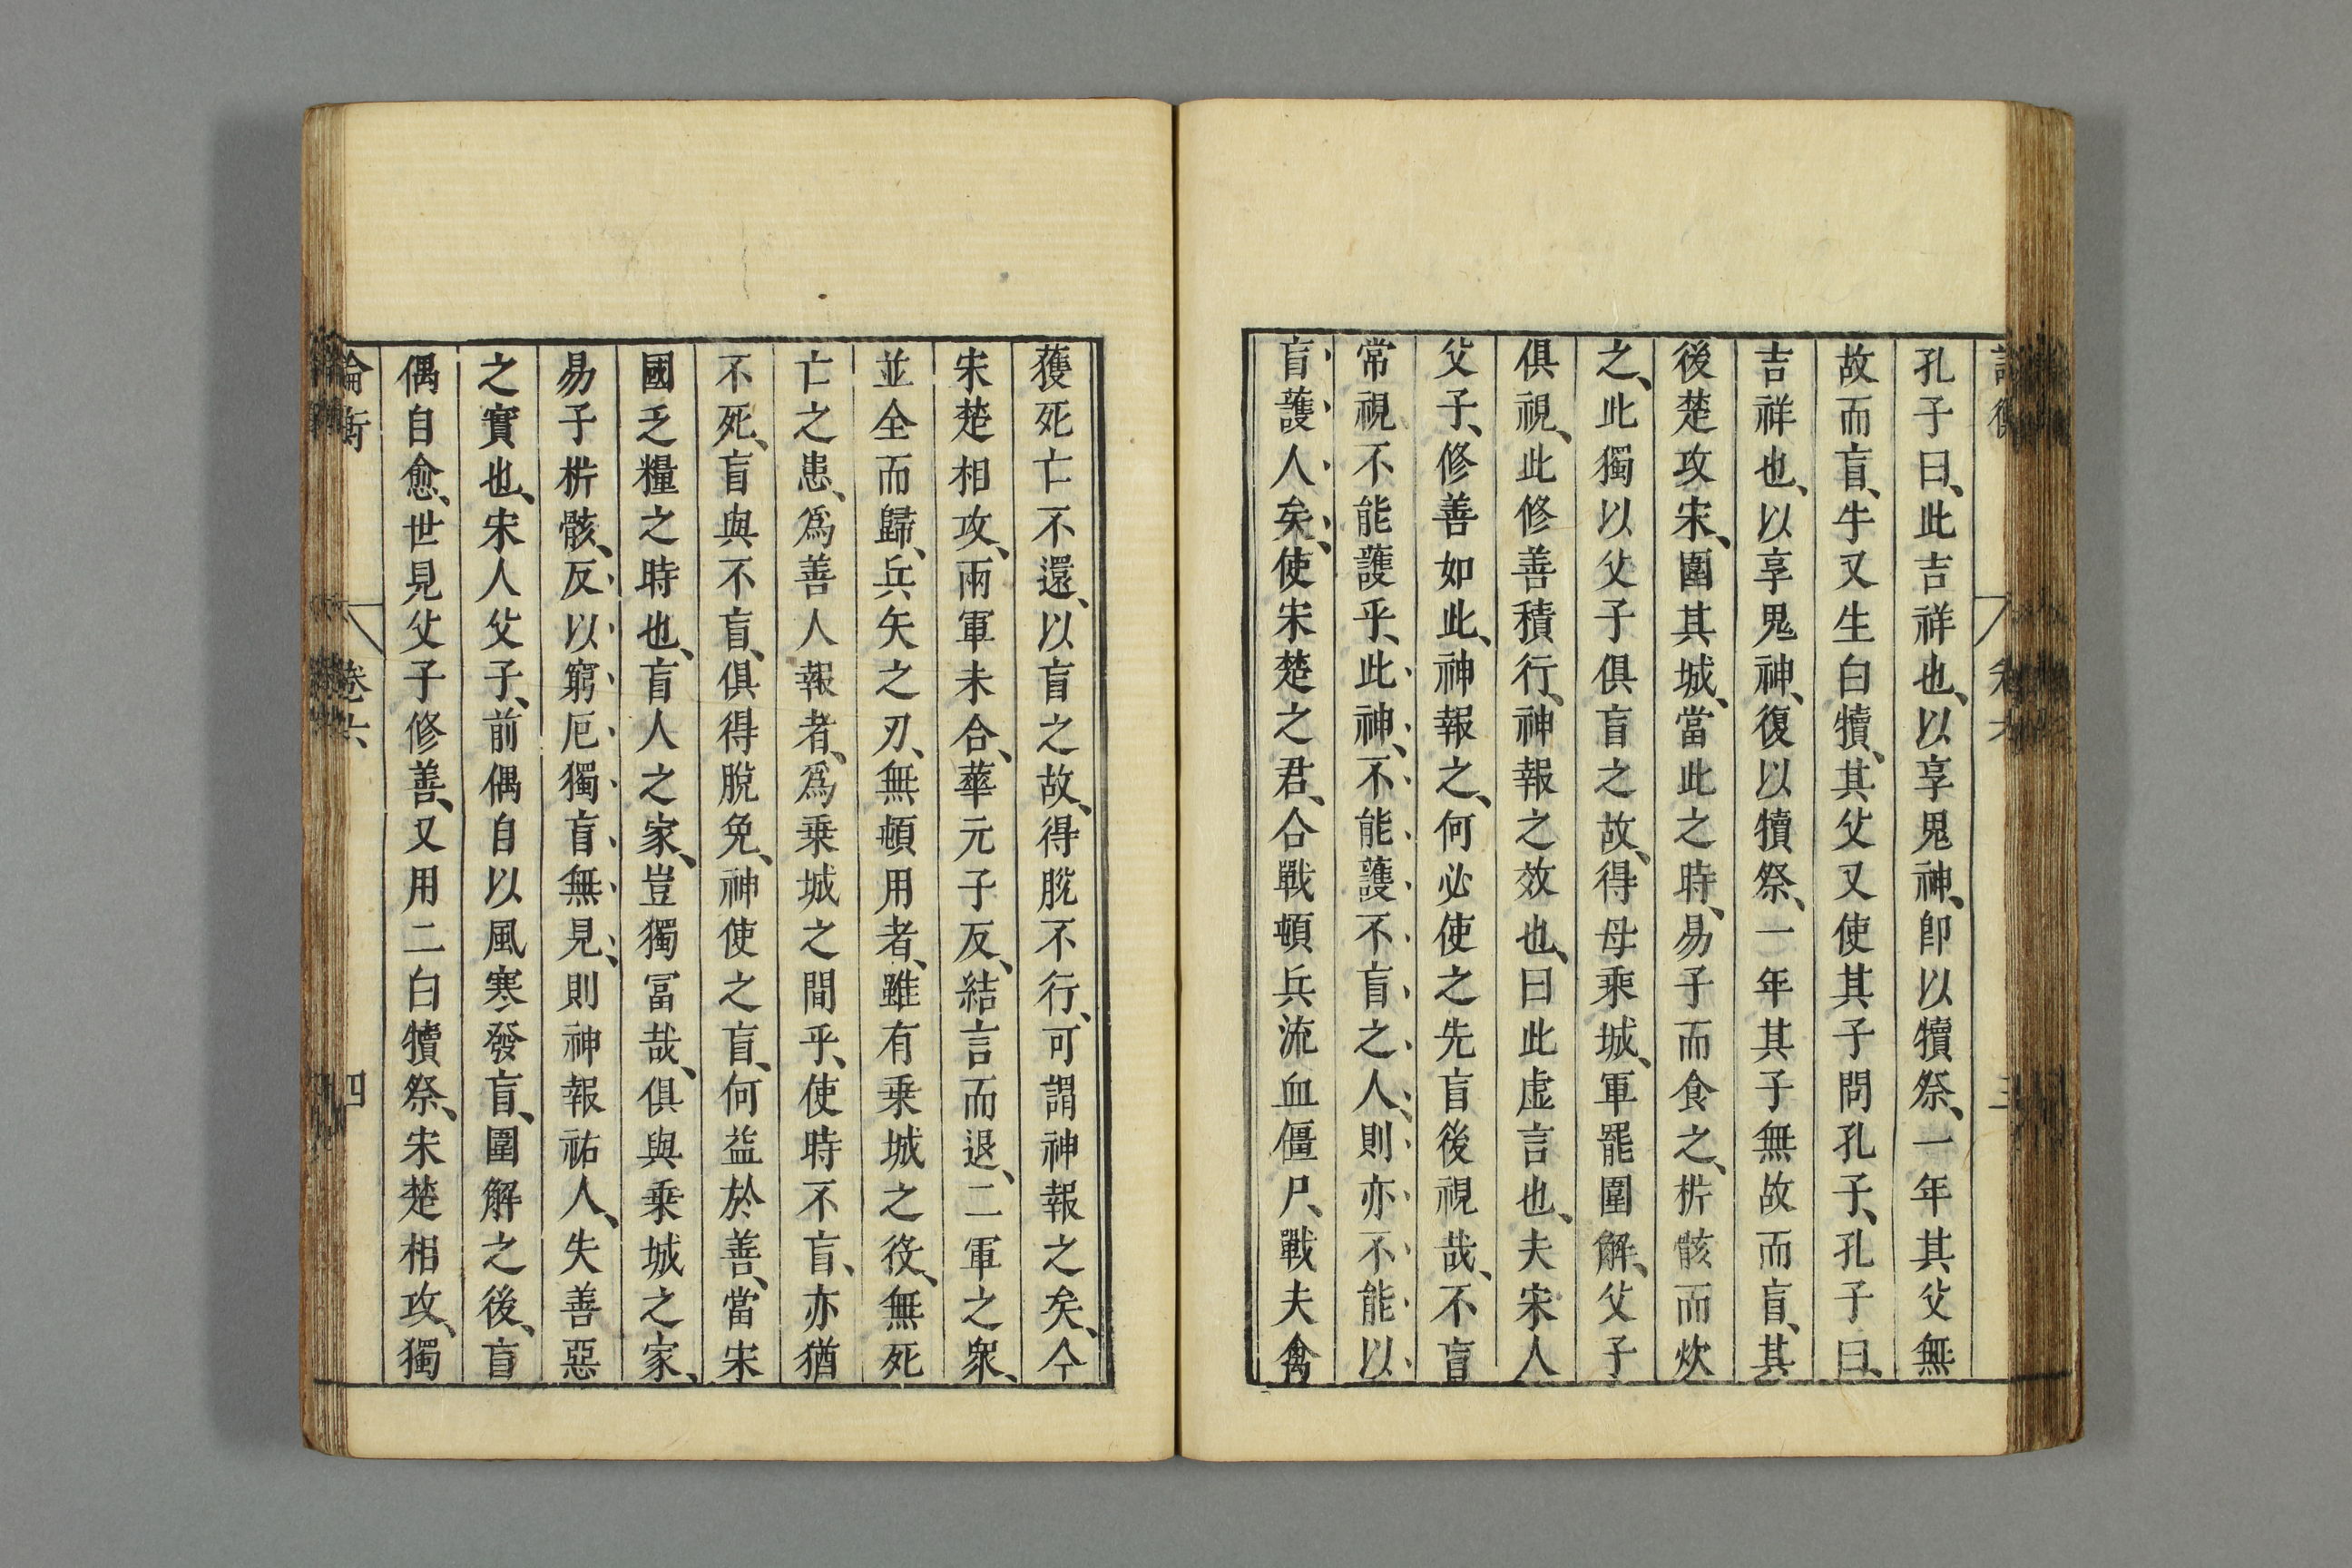 孔子曰、此吉祥也、以享鬼神、卽以犢祭、一年其父無
故而盲、牛又生白犢、其父又使其子問孔子、孔子曰、
吉祥也、以享鬼神、復以犢祭、一年其子無故而盲、其
後楚攻宋、圍其城、當此之時、易子而食之、析骸而炊
之、此獨以父子俱盲之故、得毋乘城、軍罷圍解、父子
俱視、此修善積行、神報之效也、曰此虛言也、夫宋人
父子、修善如此、神報之、何必使之先盲後視哉、不盲
常視不能護乎、此神、不能護不盲之人、則亦不能以
盲護人矣、使宋楚之君、合戰頓兵流血僵尸、戰夫禽
獲死亡不還、以盲之故、得脫不行、可謂神報之矣、今
宋楚相攻、兩軍未合、華元子反、結言而退、二軍之衆、
並全而歸、兵矢之刃、無頓用者、雖有乗城之役、無死
亡之患、爲善人報者、爲乗城之間乎、使時不盲、亦猶
不死、盲與不盲、俱得脫免、神使之盲、何益於善、當宋
國乏糧之時也、盲人之家、豈獨冨哉、俱與乗城之家、
易子析骸、反以窮厄獨盲無見、則神報祐人、失善惡
之實也、宋人父子、前偶自以風寒發盲、圍解之後、盲
偶自愈、世見父子修善、又用二白犢祭、宋楚相攻、獨
論衡 卷六 四